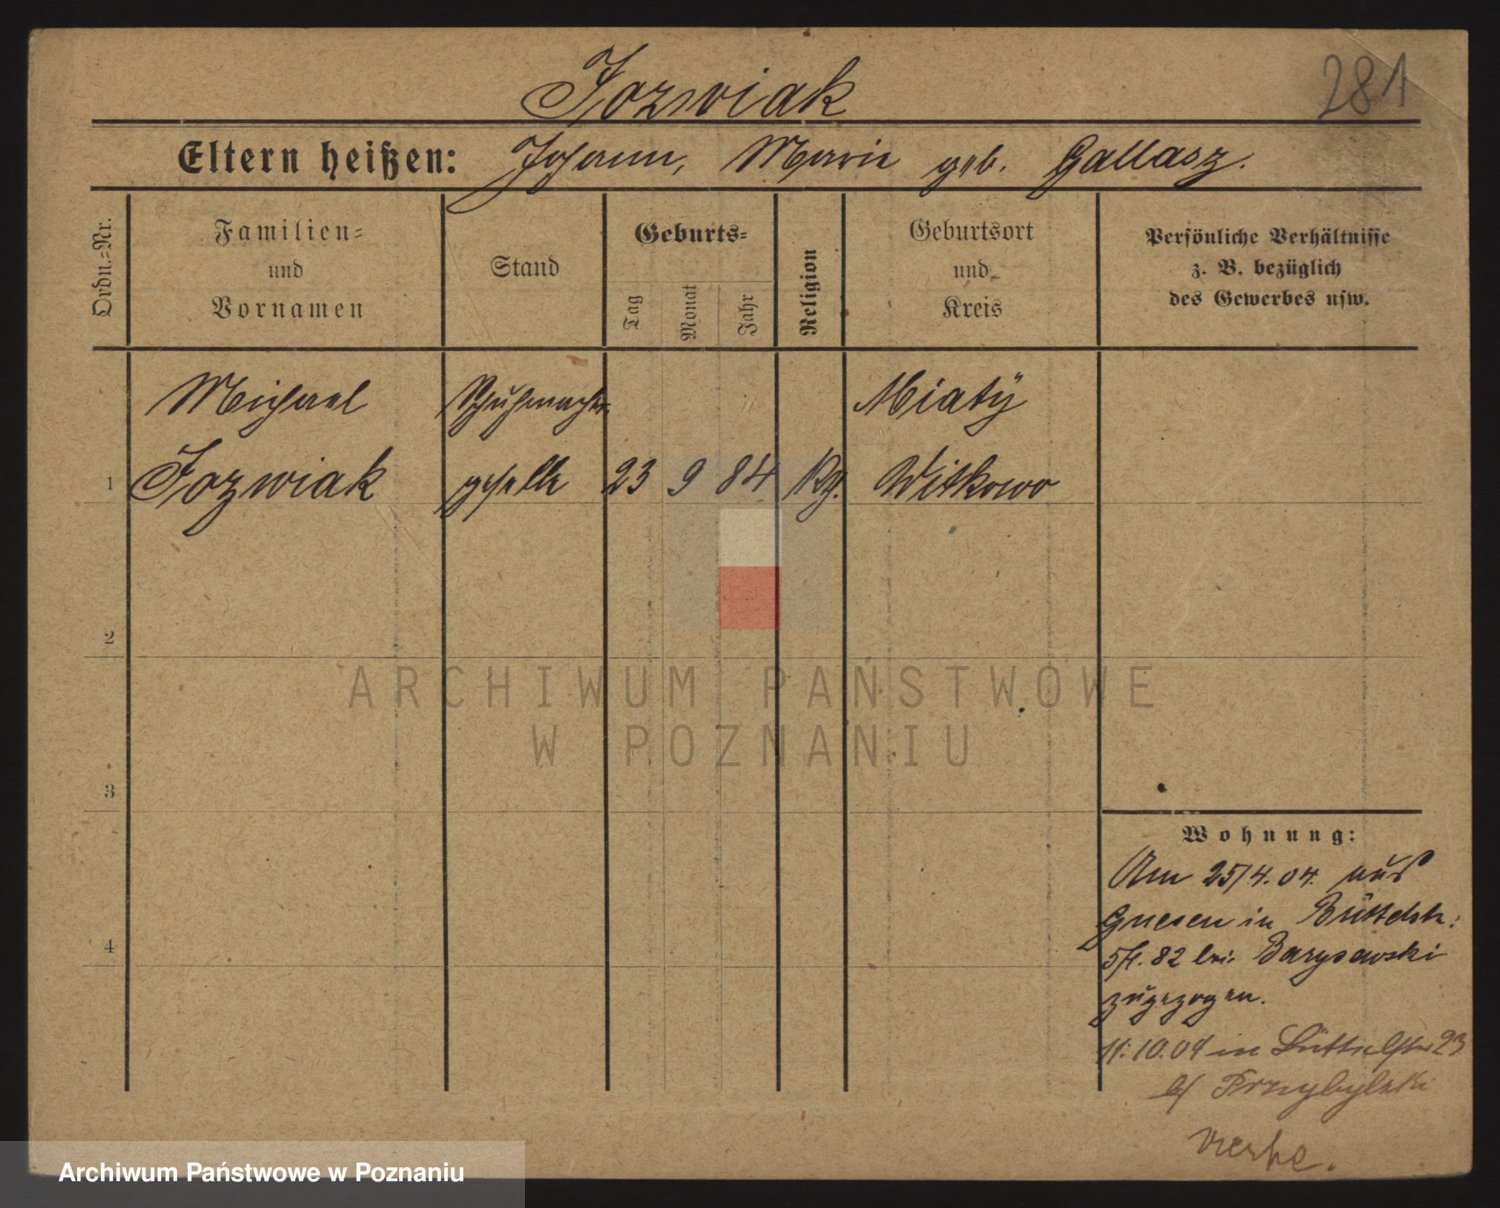 Jozwiak
281
Eltern heißen: Johann, Marie geb. Gallasz.
Ordn.=Nr.
Familien=
und
Vornamen
Stand
Geburts=
Tag
Monat
Jahr
Religion
Geburtsort
und
Kreis
Persönliche Verhältnisse
z. B. bezüglich
des Gewerbes usw.
Michael Schuhmacher Miaty
1 Jozwiak geselle 23 9 84 Witkowo
2
3
4
Wohnung:
Am 25/4. 04. aus
Gnesen in Büttelstr:
82 bei
zugezogen.
10.04 in Büttelstr 23
ARCHIWUM PAŃSTWOWE
W POZNANIU
Archiwum Państwowe w Poznaniu